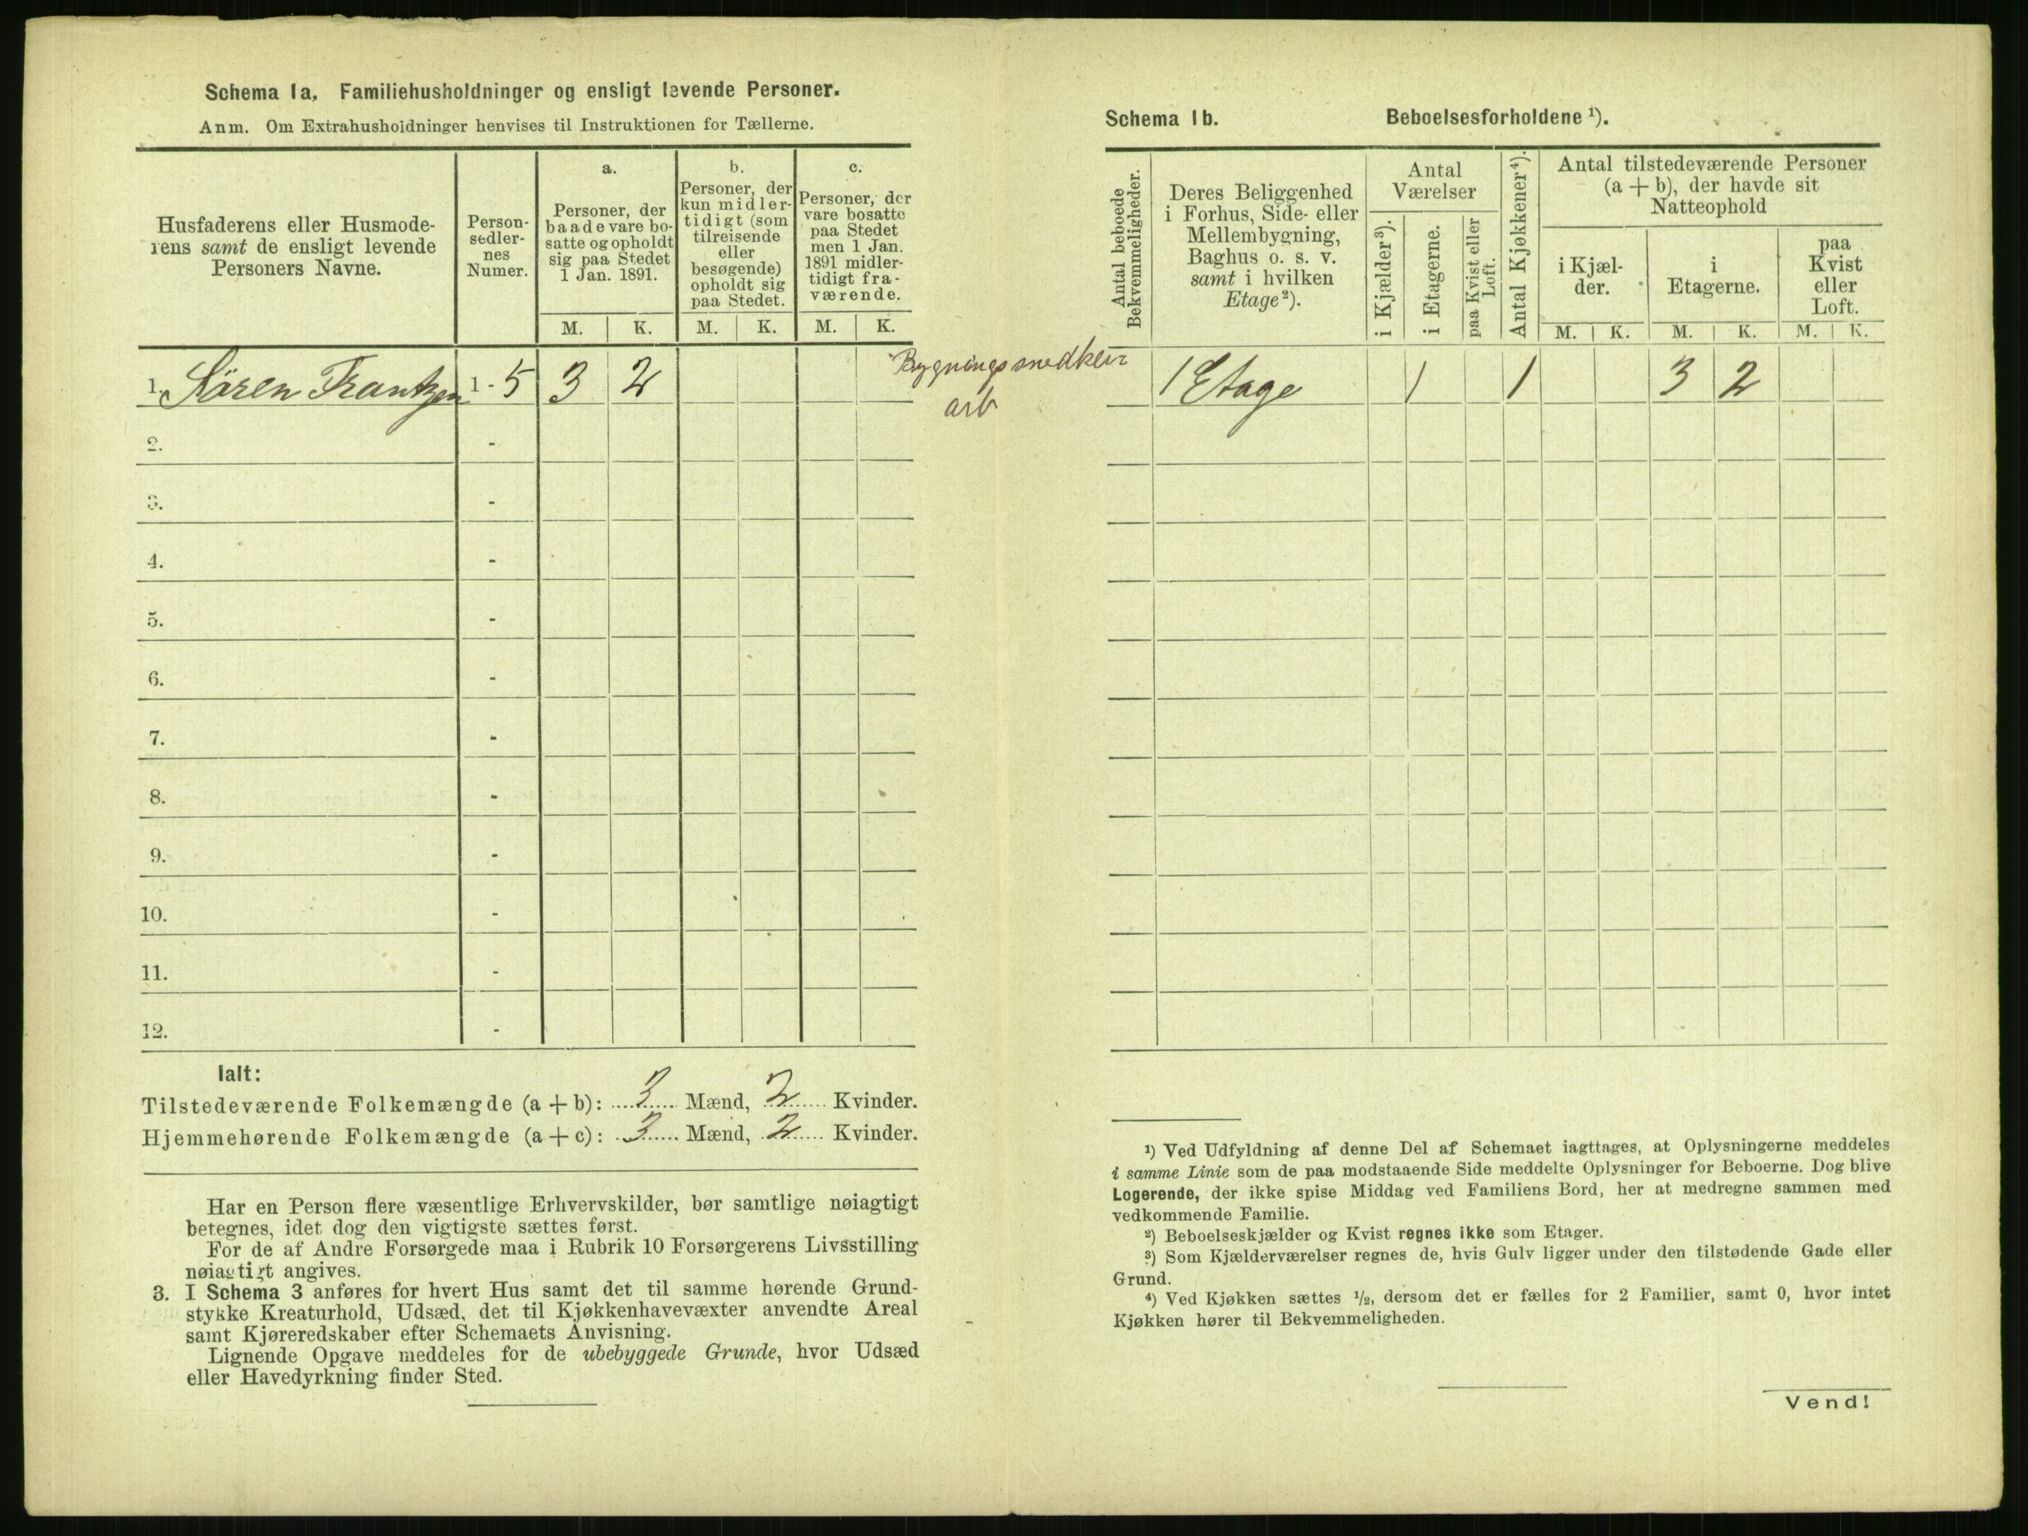 Schema 1a. Familiehusholdninger og ensligt levende Personer.
Anm. Om Extrahusholdninger henvises til Instruktionen for Tællerne.
Husfaderens eller Husmode-
rens samt de ensligt levende
Personers Navne.
Person-
sedler-
nes
Numer.
a.
Personer, der
baade vare bo-
satte og opholdt
sig paa Stedet
1 Jan. 1891.
b.
Personer, der
kun midler-
tidigt (som
tilreisende
eller
besøgende)
opholdt sig
paa Stedet.
c.
Personer, der
vare bosatte
paa Stedet
men 1 Jan.
1891 midler-
tidigt fra-
værende.
M. K. M. K. M. K.
1. Søren Frantzen 1 - 5 3 2
2. -
3. -
4. -
5. -
6. -
7. -
8. -
9. -
10. -
11. -
12. -
Ialt:
Tilstedeværende Folkemængde (a + b): 3 Mænd, 2 Kvinder.
Hjemmehørende Folkemængde (a + c): 3 Mænd, 2 Kvinder.
Har en Person flere væsentlige Erhvervskilder, bør samtlige nøiagtigt
betegnes, idet dog den vigtigste sættes først.
For de af Andre Forsørgede maa i Rubrik 10 Forsørgerens Livsstilling
nøiagtigt angives.
3. I Schema 3 anføres for hvert Hus samt det til samme hørende Grund-
stykke Kreaturhold, Udsæd, det til Kjøkkenhavevæxter anvendte Areal
samt Kjøreredskaber efter Schemaets Anvisning.
Lignende Opgave meddeles for de ubebyggede Grunde, hvor Udsæd
eller Havedyrkning finder Sted.
Bygningssnedker
arb
Schema 1b. Beboelsesforholdene ¹).
Antal beboede
Bekvemmeligheder.
Deres Beliggenhed
i Forhus, Side- eller
Mellembygning,
Baghus o. s. v.
samt i hvilken
Etage²).
Antal
Værelser
i Kjælder³).
i Etagerne.
paa Kvist eller
Loft.
Antal Kjøkkener⁴).
Antal tilstedeværende Personer
(a + b), der havde sit
Natteophold
i Kjæl-
der.
i
Etagerne.
paa
Kvist
eller
Loft.
M. K. M. K. M. K.
1 Etage 1 1 3 2
¹) Ved Udfyldning af denne Del af Schemaet iagttages, at Oplysningerne meddeles
i samme Linie som de paa modstaaende Side meddelte Oplysninger for Beboerne. Dog blive
Logerende, der ikke spise Middag ved Familiens Bord, her at medregne sammen med
vedkommende Familie.
²) Beboelseskjælder og Kvist regnes ikke som Etager.
³) Som Kjælderværelser regnes de, hvis Gulv ligger under den tilstødende Gade eller
Grund.
⁴) Ved Kjøkken sættes ½, dersom det er fælles for 2 Familier, samt 0, hvor intet
Kjøkken hører til Bekvemmeligheden.
Vend!